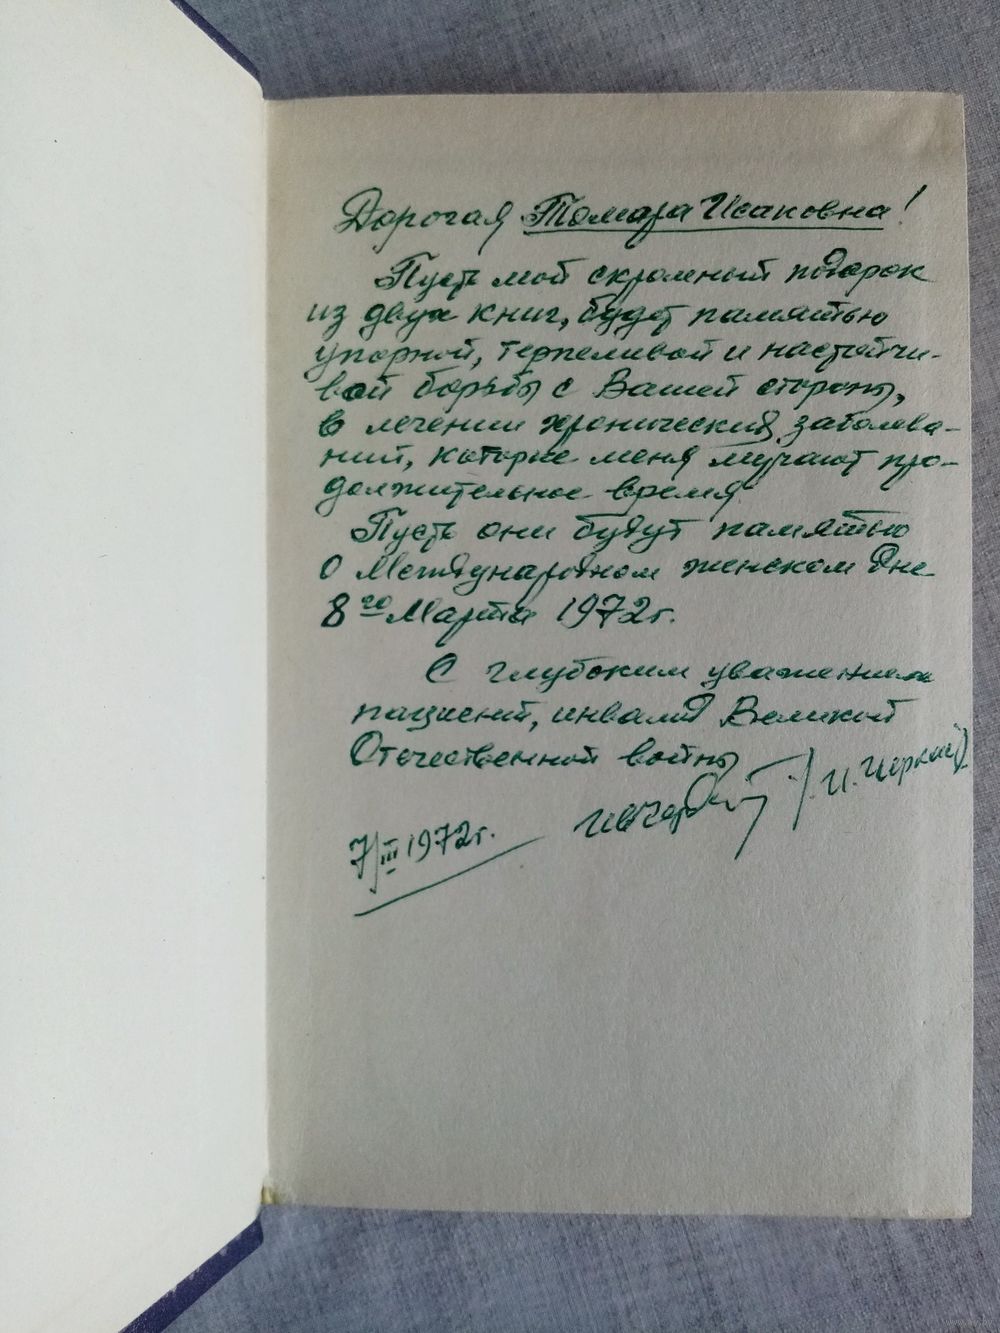 Дорогая Тамара Исаковна!
Пусть мой скромный подарок
из двух книг, будет памятью
упорной, терпеливой и настойчи-
вой борьбы с Вашей стороны,
в лечении хронический заболева-
ний, которые меня мучают про-
должительное время
Пусть они будут памятью
О Международном женском дне
8го Марта 1972г.
С глубоким уважением
пациент, инвалид Великой
Отечественной войны
7/III 1972г.